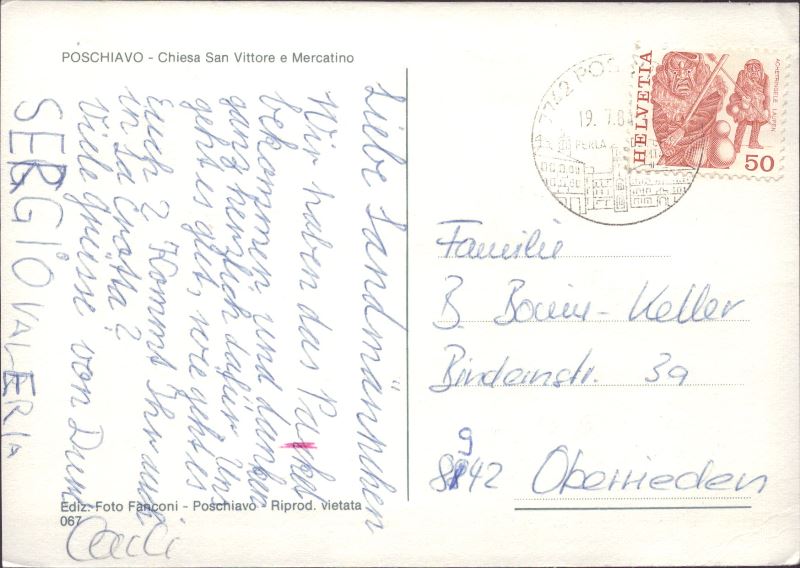 POSCHIAVO - Chiesa San Vittore e Mercatino
Liebe Sandmännchen
Wir haben das Paket
bekommen und danken
ganz herzlich dafür. Uns
geht es gut, wie geht es
Euch? Kommt Ihr auch
in La
Viele Grüsse von
SERGIO VALERIA
Ediz. Foto Fanconi - Poschiavo - Riprod. vietata
067
7742 POS
19. 7.8
PERLA
HELVETIA
ACHETRINGELE LAUPEN
50
Familie
B. - Keller
3a
8942 Oberrieden